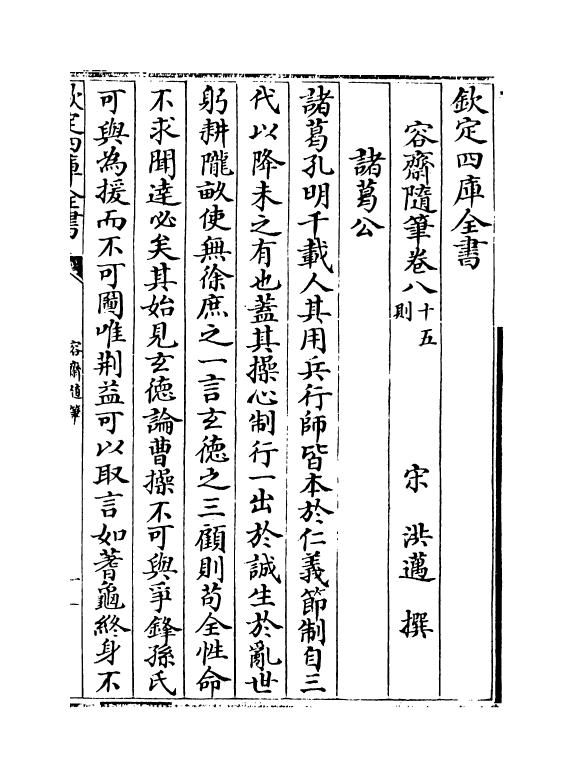 欽定四庫全書
容齋隨筆卷八 十五則 宋 洪邁 撰
諸葛公
諸葛孔明千載人其用兵行師皆本於仁義節制自三
代以降未之有也蓋其操心制行一出於誠生於亂世
躬耕隴畝使無徐庶之一言玄徳之三顧則苟全性命
不求聞達必矣其始見玄徳論曹操不可與爭鋒孫氏
可與為援而不可圖唯荆益可以取言如蓍龜終身不
欽定四庫全書 容齋隨筆 一